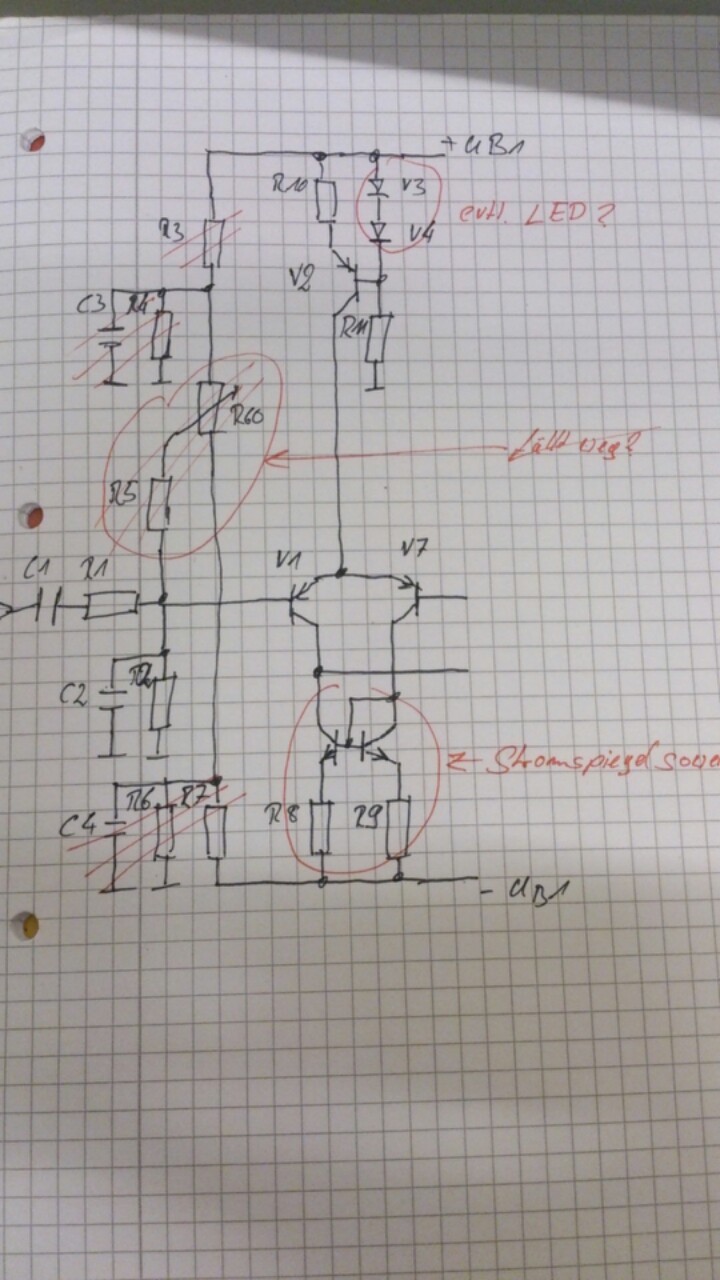 + UB1
R10
V3
evtl. LED?
R3
V4
V2
C3
R4
R11
R60
fällt weg?
R5
V7
C1
R1
V1
C2
R2
← Stromspiegel
R6
R7
C4
R8
R9
- UB1